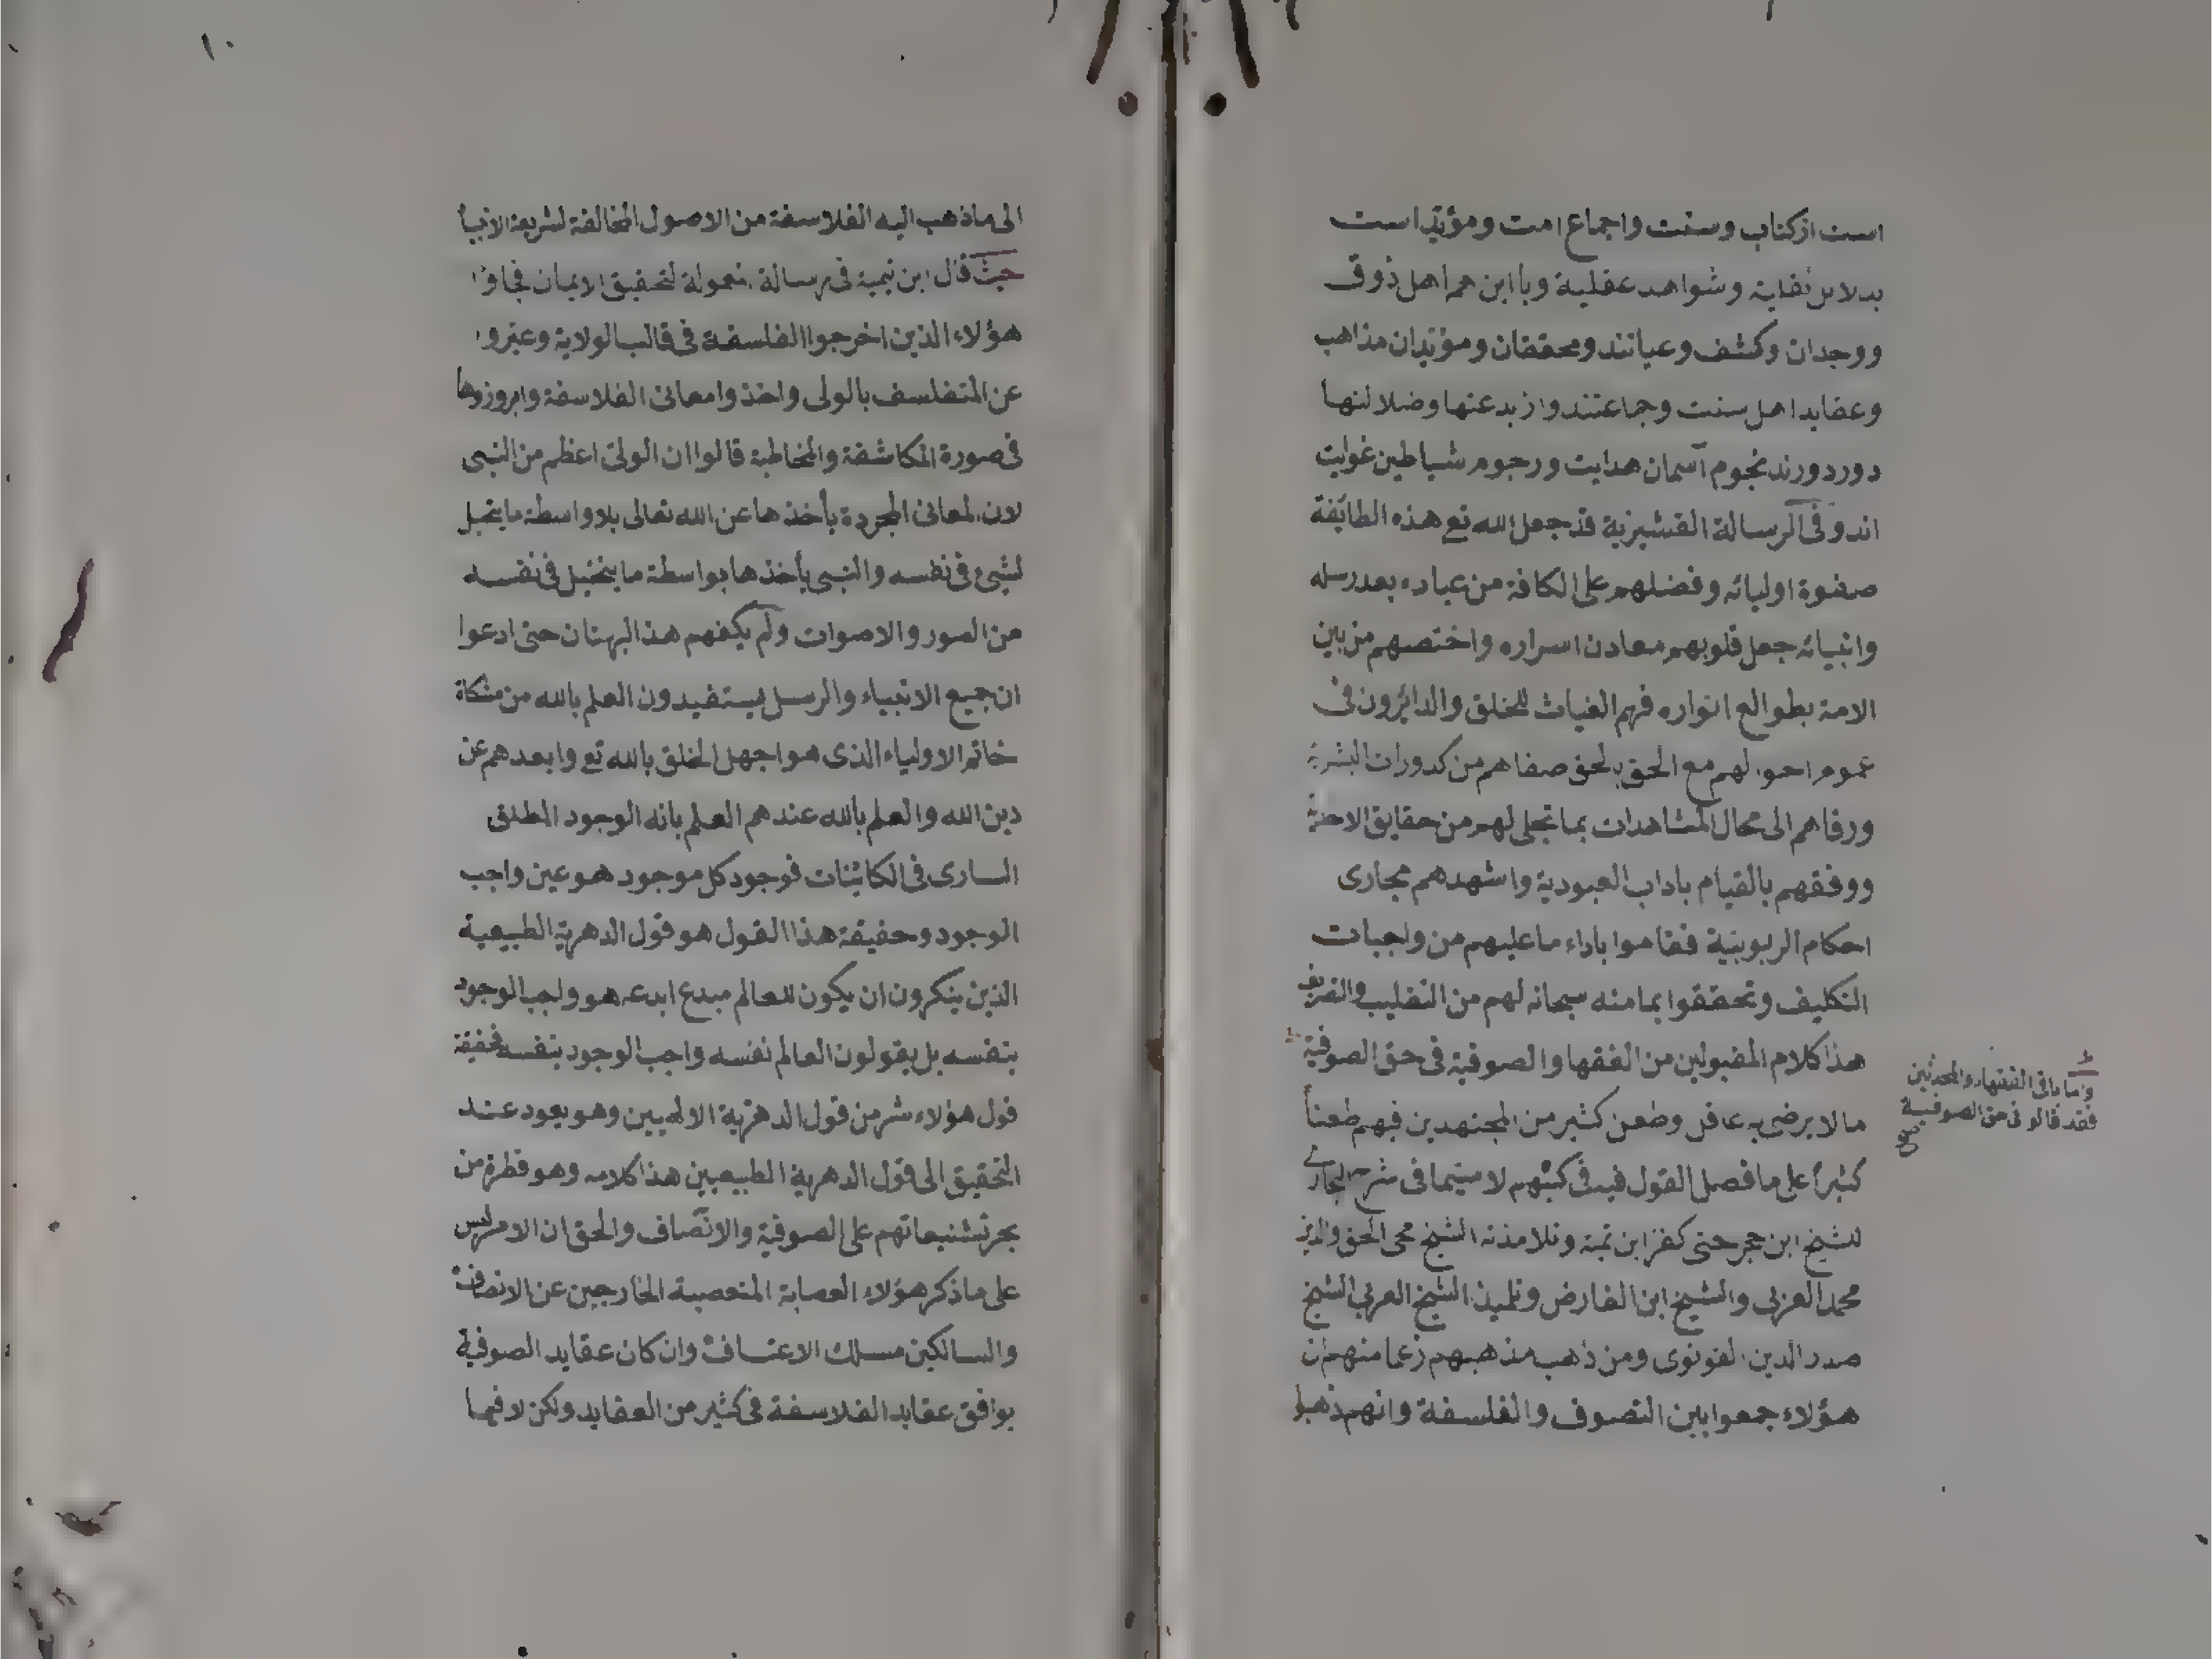 است از کتاب وسنت واجماع امت ومؤید است
بدلایل نقلیه وشواهد عقلیة وبا این هم اهل ذوق
ووجدان وکشف وعیانند ومحققان ومؤیدان مذاهب
وعقاید اهل سنت وجماعتند واز بدعتها وضلالتها
دور دورند نجوم آسمان هدایت ورجوم شیاطین غوایت
اند وفی الرسالة القشیریة قد جعل الله تع هذه الطائفة
صفوة اولیائه وفضلهم علی الکافة من عباده بعد رسله
وانبیائه جعل قلوبهم معادن اسراره واختصهم من بین
الامة بطوالع انواره فهم الغیاث للخلق والدائرون فی
عموم احوالهم مع الحق بالحق صفاهم من کدورات البشریة
ورقاهم الی محال المشاهدات بما تجلی لهم من حقایق الاحدیة
ووفقهم بالقیام باداب العبودیة واشهدهم مجاری
احکام الربوبیة فقاموا باداء ما علیهم من واجبات
التکلیف وتحققوا بما منه سبحانه لهم من التقلیب والتصریف
هذا کلام المقبولین من الفقها والصوفیة فی حق الصوفیة
واما باقی الفقهاء والمحدثین
فقد قالو فی حق الصوفیة
صح
ما لا یرضی به عاقل وطعن کثیر من المجتهدین فیهم طعناً
کثیراً علی ما فصل القول فیه فی کتبهم لا سیما فی شرح البخاری
للشیخ ابن حجر حتی کفر ابن تیمیة وتلامذته الشیخ محی الحق والدین
محمد العربی والشیخ ابن الفارض وتلمیذ الشیخ العربی الشیخ
صدر الدین القونوی ومن ذاهب مذهبهم زعما منهم ان
هؤلاء جمعوا بین التصوف والفلسفة وانهم ذهبوا
١٠
الی ما ذهب الیه الفلاسفة من الاصول المخالفة لشریعة الانبیا
حیث قال ابن تیمیة فی رسالة معمولة لتحقیق الایمان فجاؤا
هؤلاء الذین اخرجوا الفلسفة فی قالب الولایة وعبروا
عن المتفلسف بالولی واخذوا معانی الفلاسفة وابروزوها
فی صورة المکاشفة والمخاطبة قالوا ان الولی اعظم من النبی
لان المعانی المجردة یأخذها عن الله تعالی بلا واسطة ما یتخیل
لشیء فی نفسه والنبی یأخذها بواسطة ما یتخیل فی نفسه
من الصور والاصوات ولم یکفهم هذا البهتان حتی ادعوا
ان جمیع الانبیاء والرسل یستفیدون العلم بالله من مشکاة
خاتم الاولیاء الذی هو اجهل الخلق بالله تع وابعدهم عن
دین الله والعلم بالله عندهم العلم بانه الوجود المطلق
الساری فی الکائنات فوجود کل موجود هو عین واجب
الوجود وحقیقة هذا القول هو قول الدهریة الطبیعیة
الذین ینکرون ان یکون للعالم مبدع ابدعه هو واجب الوجود
بنفسه بل یقولون العالم نفسه واجب الوجود بنفسه فحقیقة
قول هؤلاء شر من قول الدهریة الالهیین وهو یعود عند
التحقیق الی قول الدهریة الطبیعیین هذا کلامه وهو قطرة من
بحر تشنیعاتهم علی الصوفیة والانصاف والحق ان الامر لیس
علی ما ذکر هؤلاء العصابة المتعصبة الخارجین عن الانصاف
والسالکین مسلک الاعتساف وان کان عقاید الصوفیة
یوافق عقاید الفلاسفة فی کثیر من العقاید ولکن لا فیما